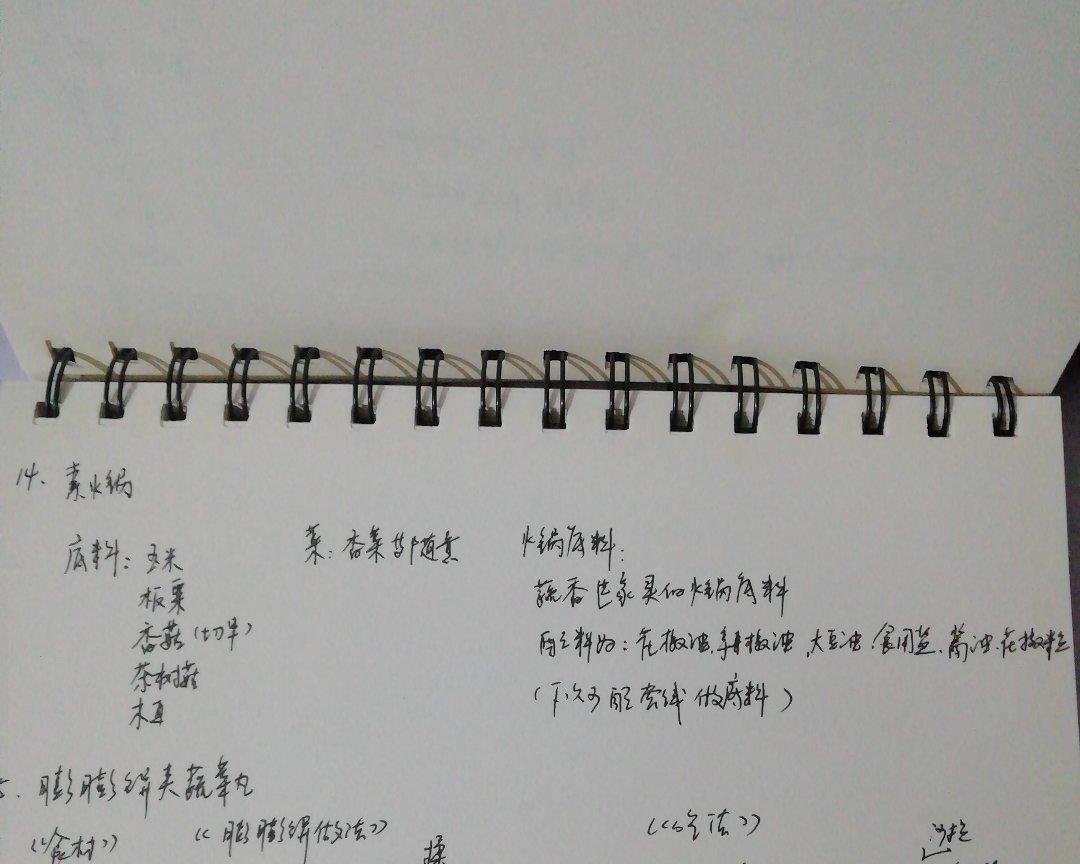 14、素火锅
底料：玉米
板栗
香菇（切半）
茶树菇
木耳
菜：香菜等随意
火锅底料：
蔬香世家 火锅底料
配料为：花椒油、辣椒油、大豆油、食用盐、酱油、花椒粒
（下次可 做底料）
膨膨饼夹蔬菜丸
《食材》
《膨膨饼做法》
揉
《吃法》
沙拉